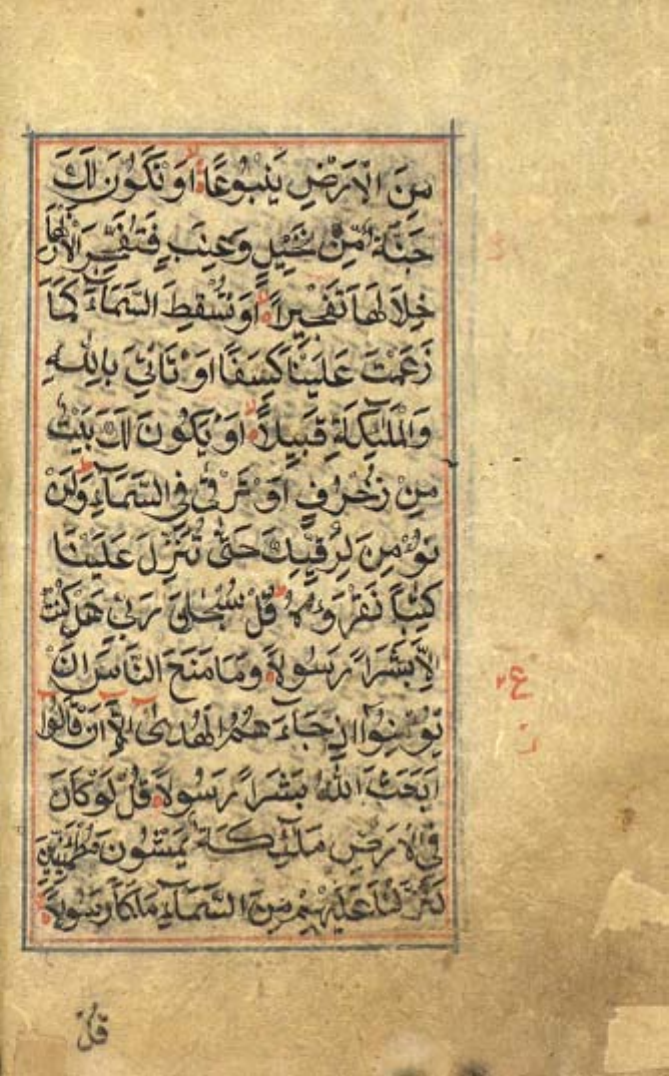 مِنَ الْاَرْضِ يَنْبُوْعًا اَوْ تَكُوْنَ لَكَ
جَنَّةٌ مِّنْ نَّخِيْلٍ وَّعِنَبٍ فَتُفَجِّرَ الْاَنْهٰرَ
خِلٰلَهَا تَفْجِيْرًا اَوْ تُسْقِطَ السَّمَآءَ كَمَا
زَعَمْتَ عَلَيْنَا كِسَفًا اَوْ تَاْتِيَ بِاللّٰهِ
وَالْمَلٰٓئِكَةِ قَبِيْلًا اَوْ يَكُوْنَ لَكَ بَيْتٌ
مِنْ زُخْرُفٍ اَوْ تَرْقٰى فِى السَّمَآءِ وَلَنْ
نُؤْمِنَ لِرُقِيِّكَ حَتّٰى تُنَزِّلَ عَلَيْنَا
كِتٰبًا نَقْرَؤُهٗ قُلْ سُبْحَانَ رَبِّيْ هَلْ كُنْتُ
اِلَّا بَشَرًا رَسُوْلًا وَمَا مَنَعَ النَّاسَ اَنْ
يُؤْمِنُوْٓا اِذْ جَآءَهُمُ الْهُدٰٓى اِلَّآ اَنْ قَالُوْٓا
اَبَعَثَ اللّٰهُ بَشَرًا رَسُوْلًا قُلْ لَوْ كَانَ
فِى الْاَرْضِ مَلٰٓئِكَةٌ يَمْشُوْنَ مُطْمَئِنِّيْنَ
لَنَزَّلْنَا عَلَيْهِمْ مِنَ السَّمَآءِ مَلَكًا رَسُوْلًا
ع
قُلْ